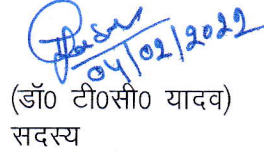 04/02/2022
(डॉ0 टी0सी0 यादव)
सदस्य